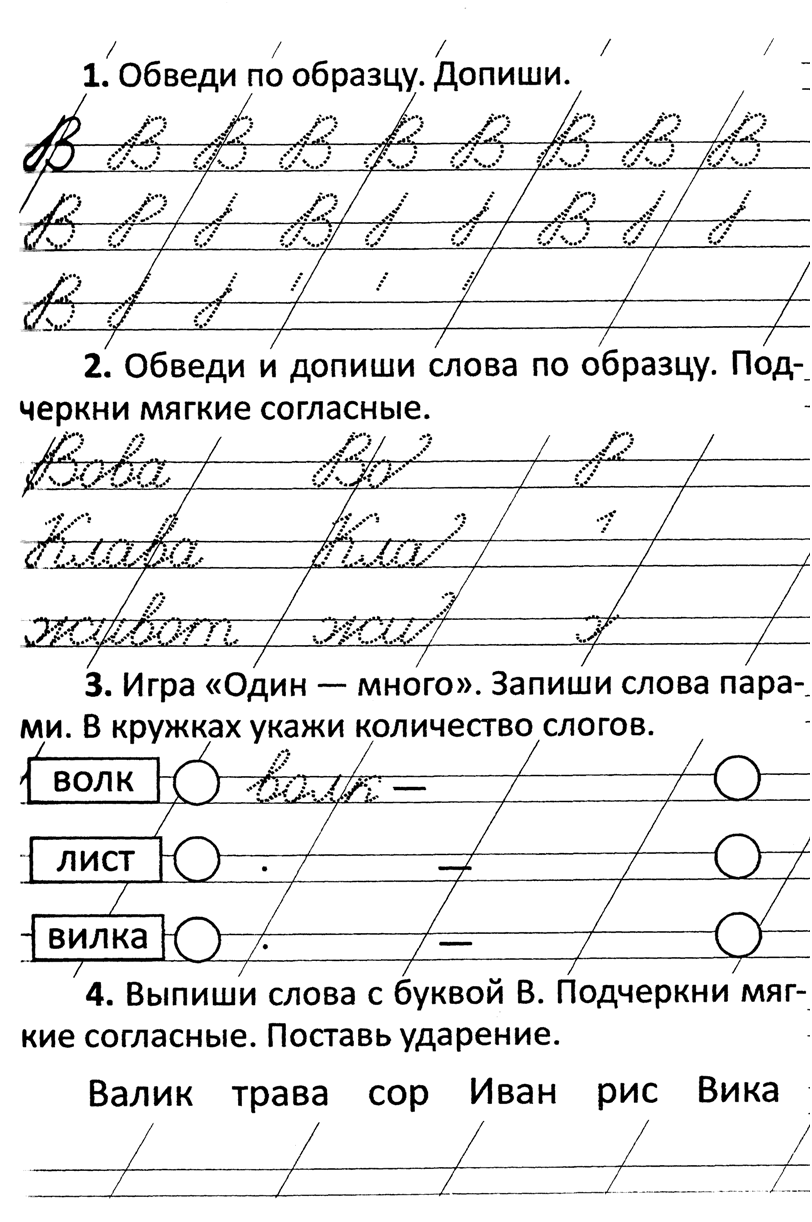 1. Обведи по образцу. Допиши.
В В В В В В В В В
В Р В В
В
2. Обведи и допиши слова по образцу. Под-
черкни мягкие согласные.
Вова Во Р
Клава Кла
живот жи
3. Игра «Один — много». Запиши слова пара-
ми. В кружках укажи количество слогов.
волк волк —
лист . —
вилка . —
4. Выпиши слова с буквой В. Подчеркни мяг-
кие согласные. Поставь ударение.
Валик трава сор Иван рис Вика